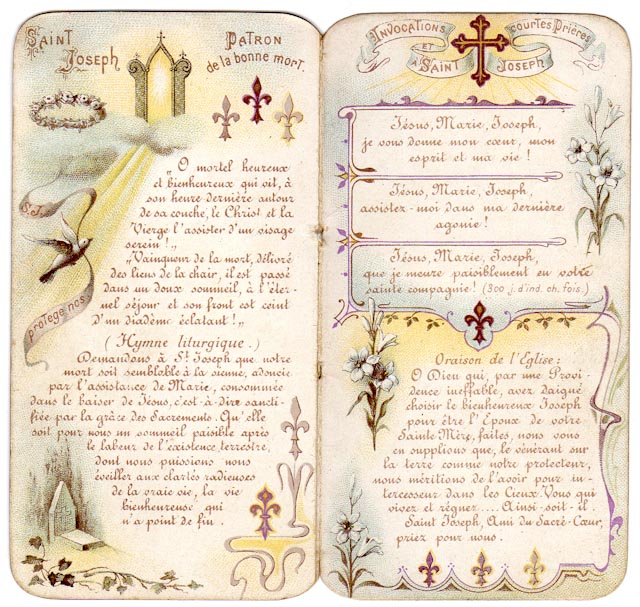 SAINT JOSEPH
PATRON
de la bonne mort.
St J.
protège nos
„O mortel heureux
et bienheureux qui vit, à
son heure dernière autour
de sa couche, le Christ et la
Vierge l'assister d'un visage
serein!„
„Vainqueur de la mort, délivré
des liens de la chair, il est passé
dans un doux sommeil, à l'éter-
nel séjour et son front est ceint
d'un diadème éclatant!„
(Hymne liturgique.)
Demandons à St Joseph que notre
mort soit semblable à la sienne, adoucie
par l'assistance de Marie, consommée
dans le baiser de Jésus, c'est-à-dire sancti-
fiée par la grâce des Sacrements. Qu'elle
soit pour nous un sommeil paisible après
le labeur de l'existence terrestre,
dont nous puissions nous
éveiller aux clartés radieuses
de la vraie vie, la vie
bienheureuse qui
n'a point de fin.
INVOCATIONS ET courtes Prières
A SAINT JOSEPH
Jésus, Marie, Joseph,
je vous donne mon cœur, mon
esprit et ma vie!
Jésus, Marie, Joseph,
assistez-moi dans ma dernière
agonie!
Jésus, Marie, Joseph,
que je meure paisiblement en votre
sainte compagnie! (300 j. d'ind. ch. fois.)
Oraison de l'Eglise:
O Dieu qui, par une Provi-
dence ineffable, avez daigné
choisir le bienheureux Joseph
pour être l'Epoux de votre
Sainte Mère, faites, nous vous
en supplions que, le vénérant sur
la terre comme notre protecteur,
nous méritions de l'avoir pour in-
tercesseur dans les Cieux. Vous qui
vivez et régnez.... Ainsi-soit-il.
Saint Joseph, Ami du Sacré-Cœur,
priez pour nous.